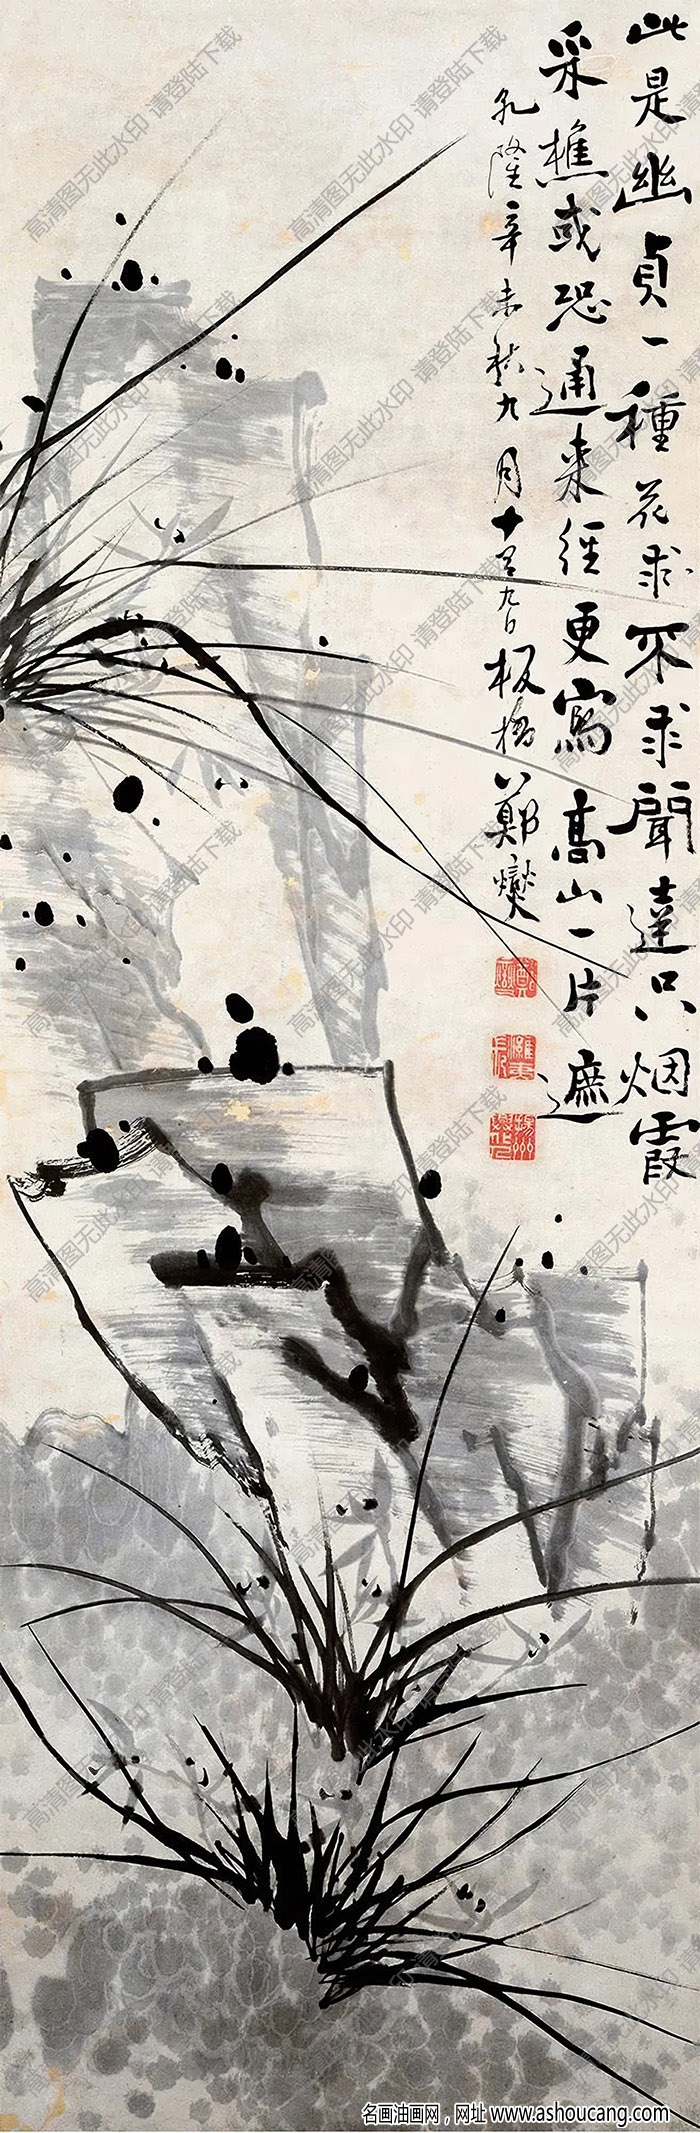 此是幽貞一種花求不求聞達只烟霞
采樵或恐通来徑更寫高山一片遮
乾隆辛未秋九月十有九日板橋鄭燮
高清图无此水印 请登陆下载
名画油画网，网址 www.ashoucang.com